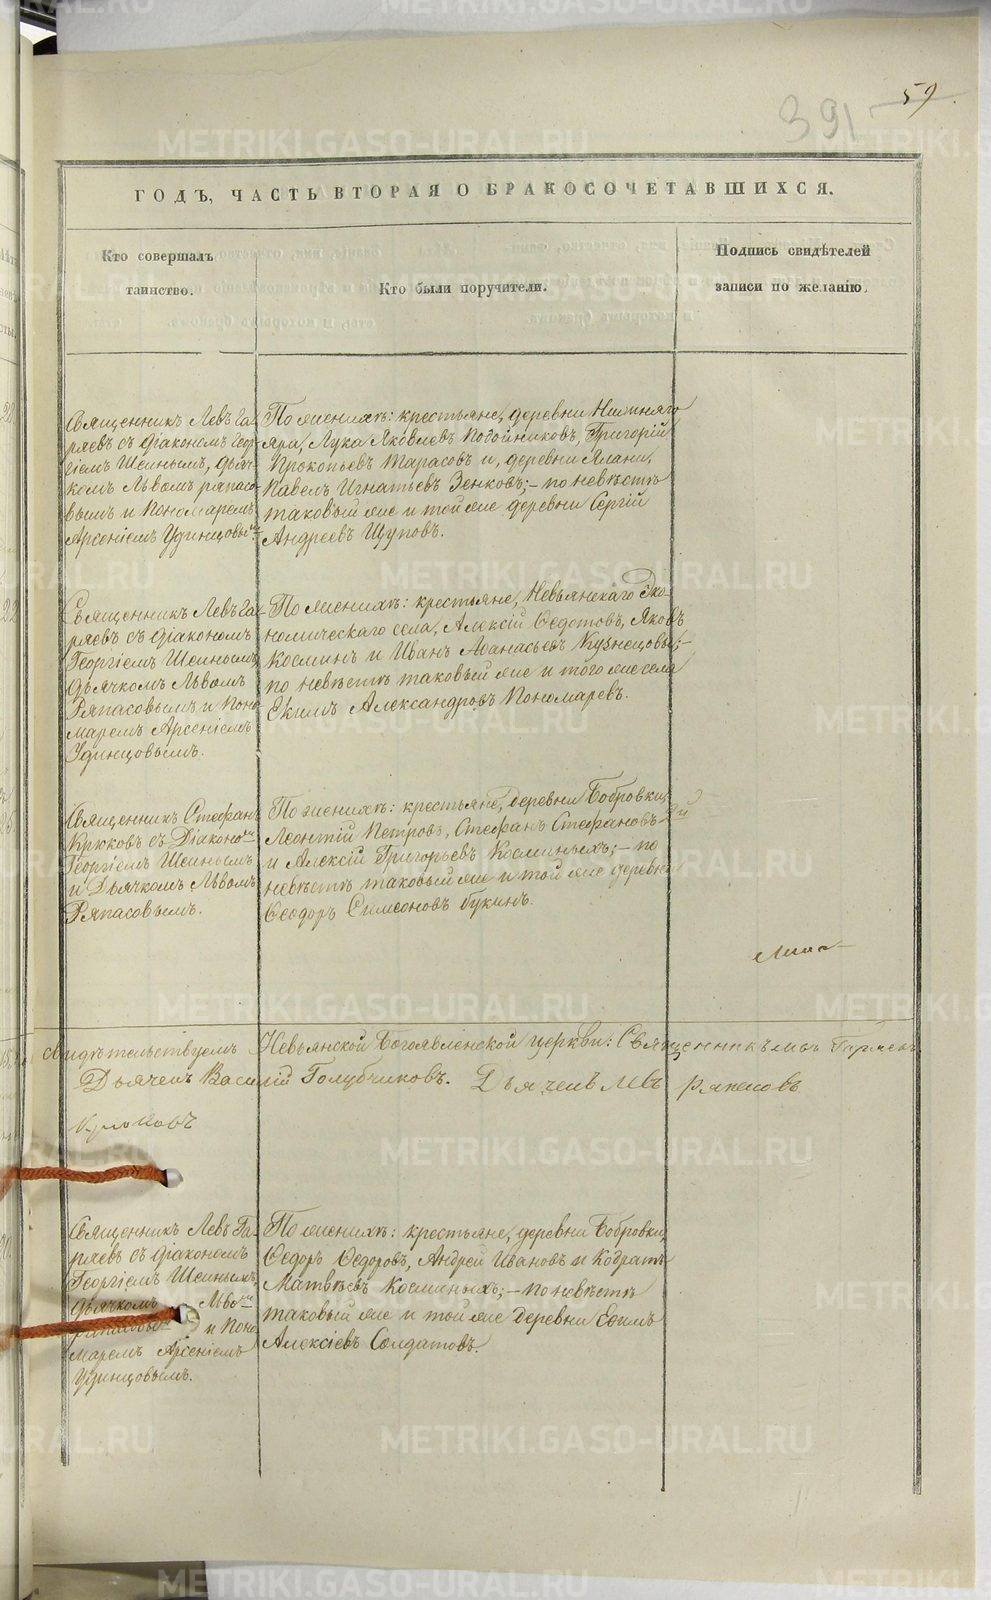 59
391
ГОДЪ, ЧАСТЬ ВТОРАЯ О БРАКОСОЧЕТАВШИХСЯ.
Кто совершалъ
таинство.
Кто были поручители.
Подпись свидѣтелей
записи по желанію.
Священникъ Левъ Га-
ряевъ съ діакономъ Геор-
гіемъ Шеинымъ, дьяч-
комъ Львомъ Ряпасо-
вымъ и Пономаремъ
Арсеніемъ Удинцовымъ
По женихѣ: крестьяне, деревни Нижняго
Яра, Лука Яковлевъ Подойниковъ, Григорій
Прокопьевъ Тарасовъ и, деревни Ялани,
Павелъ Игнатьевъ Зенковъ; – по невѣстѣ
таковый же и той же деревни Сергій
Андреевъ Щуповъ.
Священникъ Левъ Га-
ряевъ съ діакономъ
Георгіемъ Шеинымъ,
дьячкомъ Львомъ
Ряпасовымъ и Поно-
маремъ Арсеніемъ
Удинцовымъ.
По женихѣ: крестьяне, Невьянскаго Эко-
номическаго села, Алексій Ѳедотовъ, Яковъ
Косминъ и Иванъ Аѳанасьевъ Кузнецовы; –
по невѣстѣ таковый же и того же села
Екимъ Александровъ Пономаревъ.
Священникъ Стефанъ
Крюковъ съ Діакономъ
Георгіемъ Шеинымъ
и Дьячкомъ Львомъ
Ряпасовымъ.
По женихѣ: крестьяне, деревни Бобровки,
Леонтій Петровъ, Стефанъ Стефановъ
и Алексій Григорьевъ Косминыхъ; – по
невѣстѣ таковый же и той же деревни
Ѳеодоръ Симеоновъ Букинъ.
Свидѣтельствуемъ Невьянской Богоявленской церкви: Священникъ Левъ Гаряевъ
Дьячекъ Василій Голубчиковъ. Дьячекъ Левъ Ряпасовъ
Крюковъ
Священникъ Левъ Га-
ряевъ съ діакономъ
Георгіемъ Шеинымъ,
дьячкомъ Львомъ
Ряпасовымъ и Поно-
маремъ Арсеніемъ
Удинцовымъ.
По женихѣ: крестьяне, деревни Бобровки,
Ѳедоръ Ѳедоровъ, Андрей Ивановъ и Кодратъ
Матвѣевъ Косминыхъ; – по невѣстѣ
таковый же и той же деревни Ефимъ
Алексіевъ Солдатовъ.
METRIKI.GASO-URAL.RU